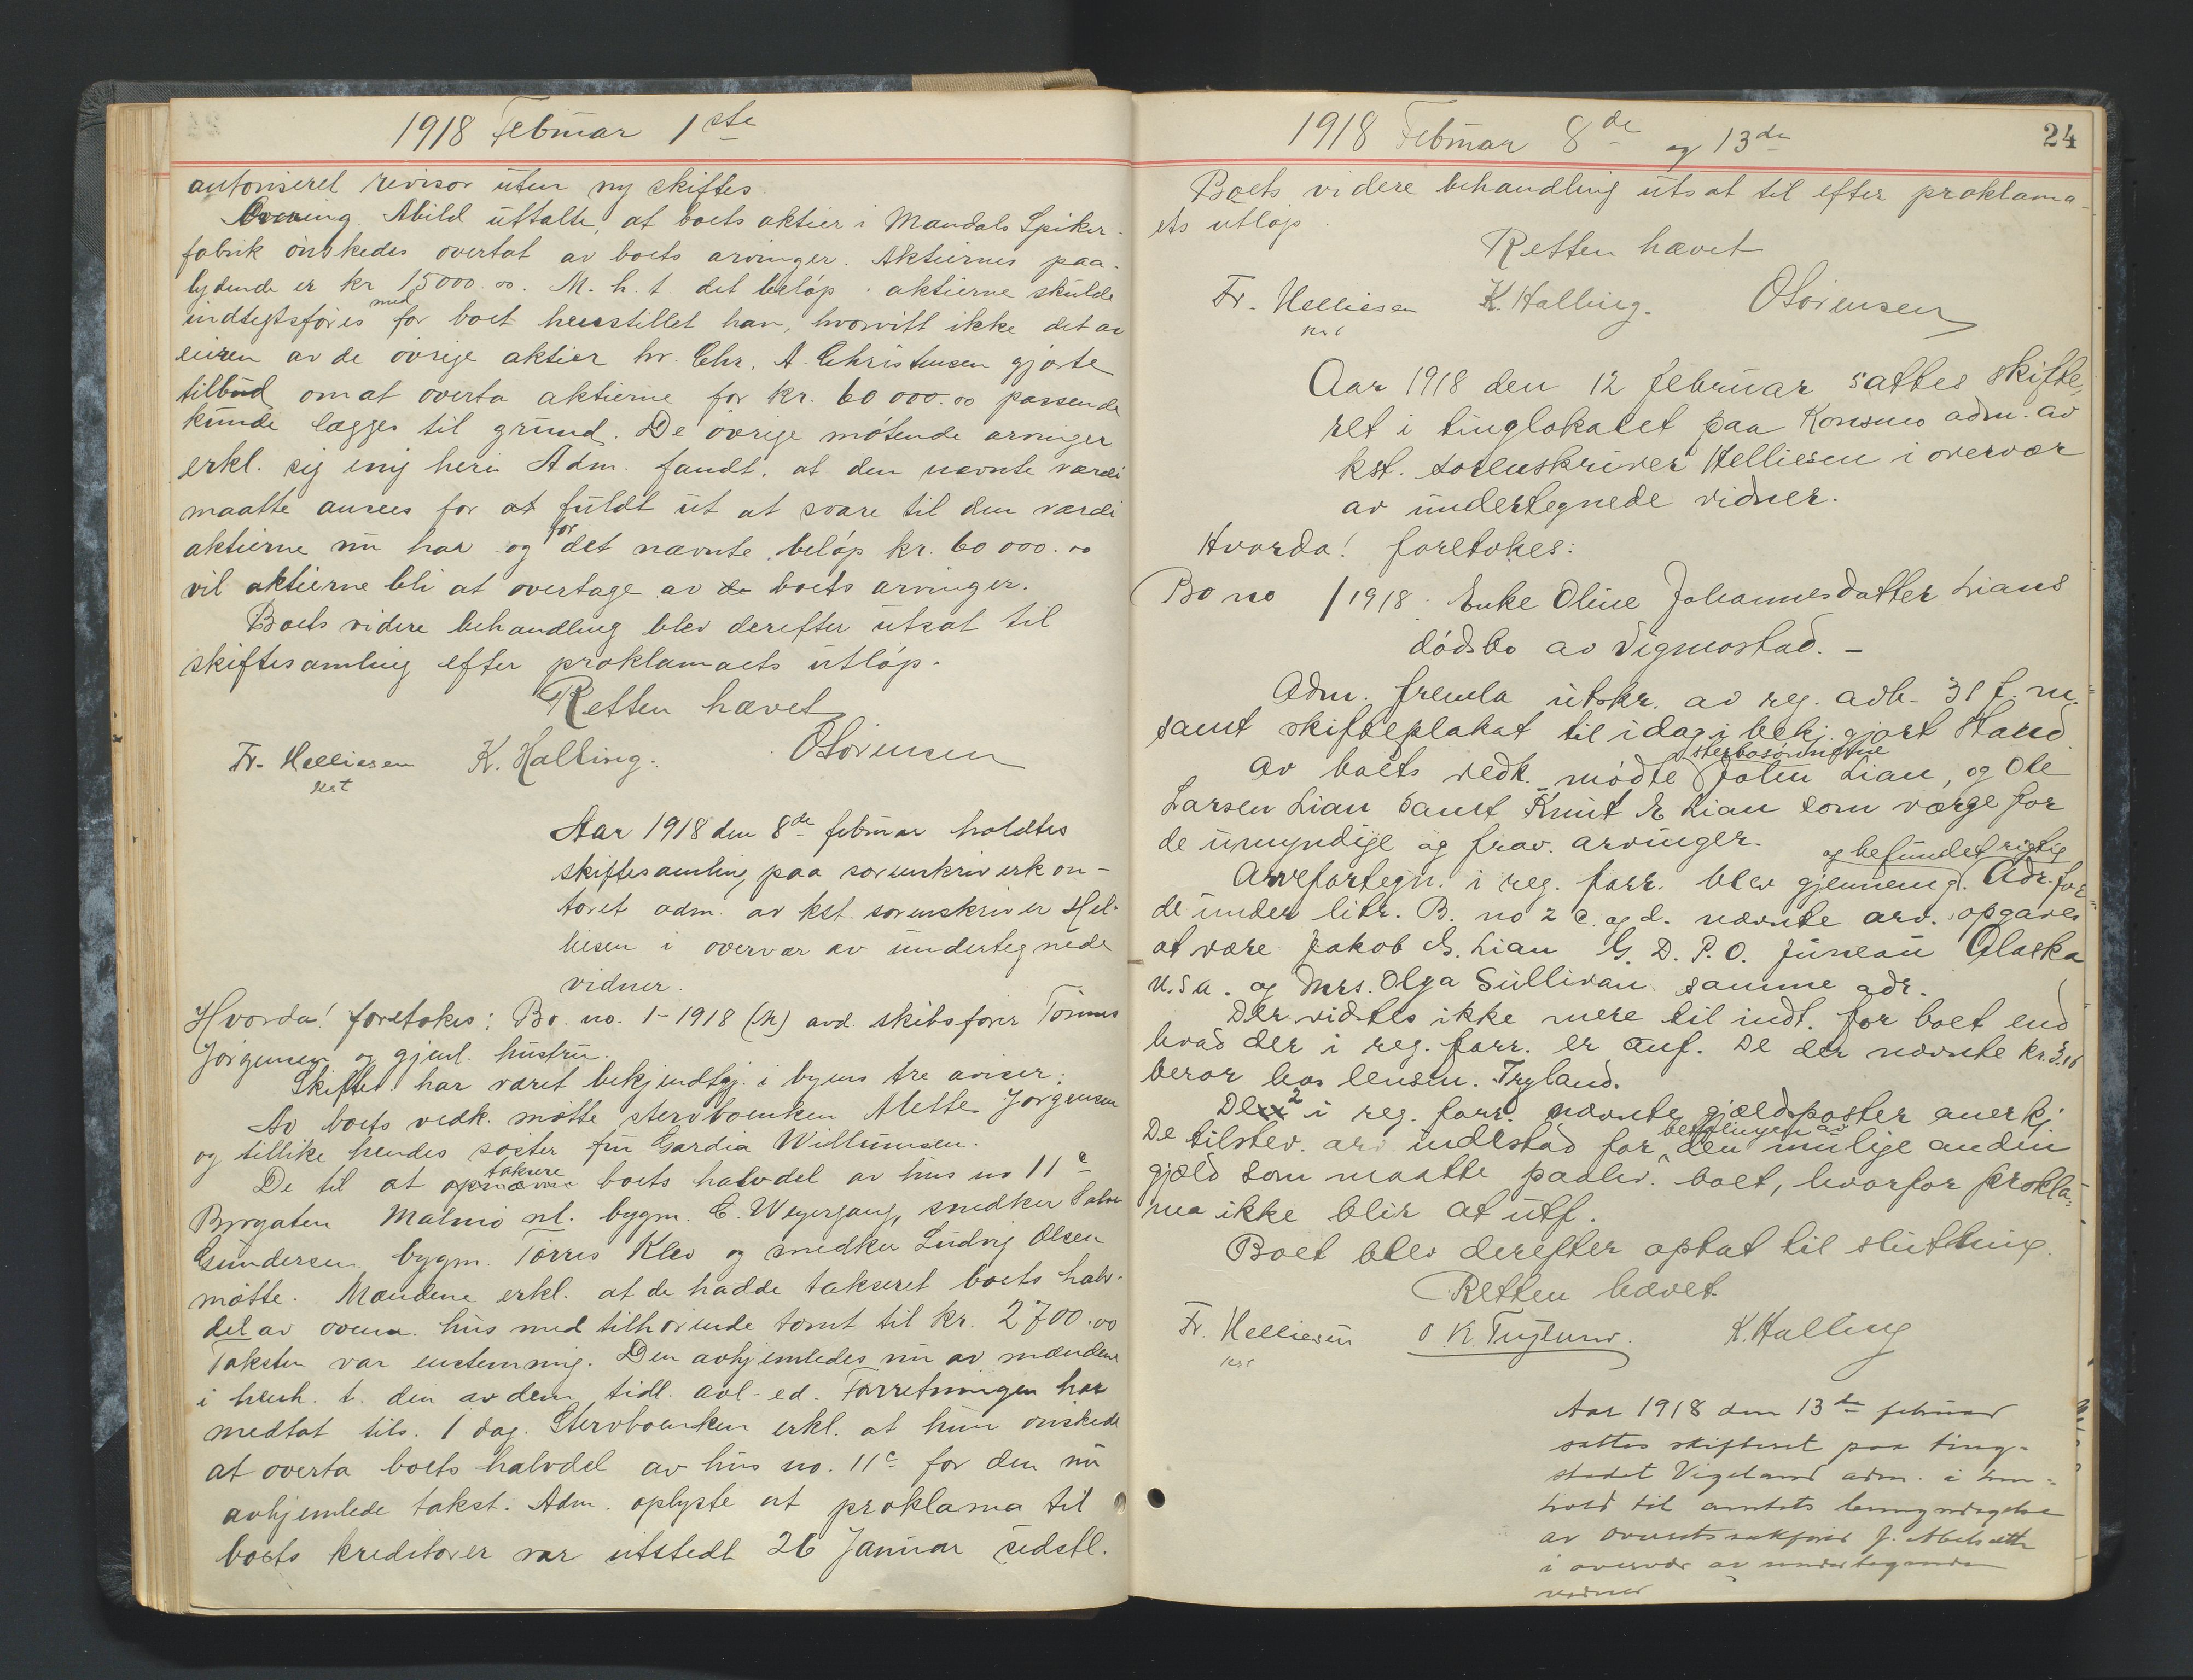 1918 Februar 1ste
autoriseret revisor uten ny skiftes.
Arving Abild uttalte, at boets aktier i Mandals Spiker-
fabrik ønskedes overtat av boets arvinger. Aktiernes paa-
lydende er kr 15000.00. M. h. t. det beløp aktierne skulde
indtegtsføres med for boet henstillet han, hvorvitt ikke det av
eieren av de øvrige aktier hr. Chr. A. Christensen gjorte
tilbud om at overta aktierne for kr. 60 000.00 passende
kunde lægges til grund. De øvrige møtende arvinger
erkl. sig enig heri. Adm. fandt, at den nævnte værdi
maatte ansees for at fuldt ut at svare til den værdi
aktierne nu har og for det nævnte beløp kr. 60 000.00
vil aktierne bli at overtage av de boets arvinger.
Boets videre behandling blev derefter utsat til
skiftesamling efter proklamaets utløp.
Retten hævet
Fr. Helliesen K. Halling. O Sørensen
kst
Aar 1918 den 8de februar holdtes
skiftesamling paa sorenskriverkon-
toret adm. av kst. sorenskriver Hel-
liesen i overvær av undertegnede
vidner.
Hvorda! foretokes: Bo. no. 1-1918 (M) avd. skibsfører Tønnes
Jørgensen og gjenl. hustru.
Skiftet har været bekjendtgj. i byens tre aviser.
Av boets vedk. møtte stervboenken Mette Jørgensen
og tillike hendes søster fru Gardia Willumsen.
De til at opnævne taksere boets halvdel av hus no 11c
Brogaten Malmø nl. bygm. C. Weyergang, snedker Salve
Gundersen bygm. Tørres Klev og snedker Ludvig Olsen
møtte. Mændene erkl. at de hadde takseret boets halv-
del av ovenn. hus med tilhørende tomt til kr. 2700.00
Taksten var enstemmig. Den avhjemledes nu av mændene
i henh. t. den av dem tidl. avl. ed. Forretningen har
medtat tils. 1 dag. Stervboenken erkl. at hun ønskede
at overta boets halvdel av hus no. 11c for den nu
avhjemlede takst. Adm. oplyste at proklama til
boets kreditorer var utstedt 26 Januar sidstl.
1918 Februar 8de og 13de
24
Boets videre behandling utsat til efter proklama-
ets utløp.
Retten hævet
Fr. Helliesen K. Halling. O Sørensen
kst
Aar 1918 den 12 februar sattes skifte-
ret i tinglokalet paa Konsmo adm. av
kst. sorenskriver Helliesen i overvær
av undertegnede vidner.
Hvorda! foretokes:
Bo no /1918. Enke Oline Johannesdatter Lians
dødsbo av Vigmostad. -
Adm. fremla utskr. av reg. avh. 31 f. m.
samt skifteplakat til idag i bekj. gjort stand
Av boets vedk. mødte sterbosønnerne John Lian, og Ole
Larsen Lian samt Knut E Lian som værge for
de umyndige og frav. arvinger.
Arvefortegn. i reg. forr. blev gjennemg. og befundet rigtig. Adr. for
de under litr. B. no 2 c. og d. nævnte arv. opgaves
at være Jakob G. Lian G. D. P. O. Juneau Alaska
U.S.A. og Mrs. Olga Sullivan samme adr.
Der vidstes ikke mere til indt. for boet end
hvad der i reg. forr. er anf. De der nævnte kr
beror hos lensm. Tryland.
De 2 i reg. forr. nævnte gjældsposter anerkj.
De tilstev. arv indestod for betalingen av den mulige anden
gjæld som maatte paahv. boet, hvorfor prokla-
ma ikke blir at utf.
Boet blev derefter optat til slutning.
Retten hævet.
Fr. Helliesen O K. Tryland. K. Halling
kst
Aar 1918 den 13de februar
sattes skifteret paa ting-
stedet Vigeland adm. i hen-
hold til amtets bemyndigelse
av overretssakfører J.
i overvær av undertegnede
vidner